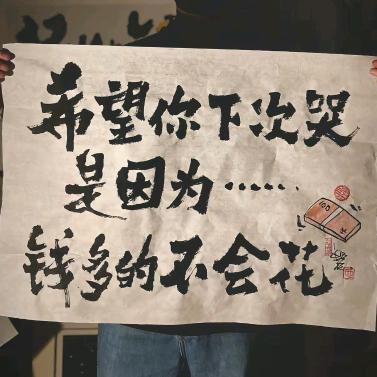 希望你下次哭
是因为……
钱多的不会花
100